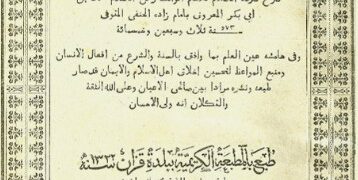 ابي بكر المعروف بامام زاده الحنفي المتوفى
٥٧٣ سنة ثلاث وسبعين وخمسمائة
وفى هامشه عين العلم بما وافق بالسنة والشرع من افعال الانسان
ومنبع المواعظ لتحسين اخلاق اهل الاسلام والايمان قد صار
طبعه ونشره مرادا بين صالحى الاعيان وعلى الله الثقة
والتكلان انه ولى الاحسان
طبع بالمطبعة الكريمية ببلدة قزان سنة ١٣٢٢